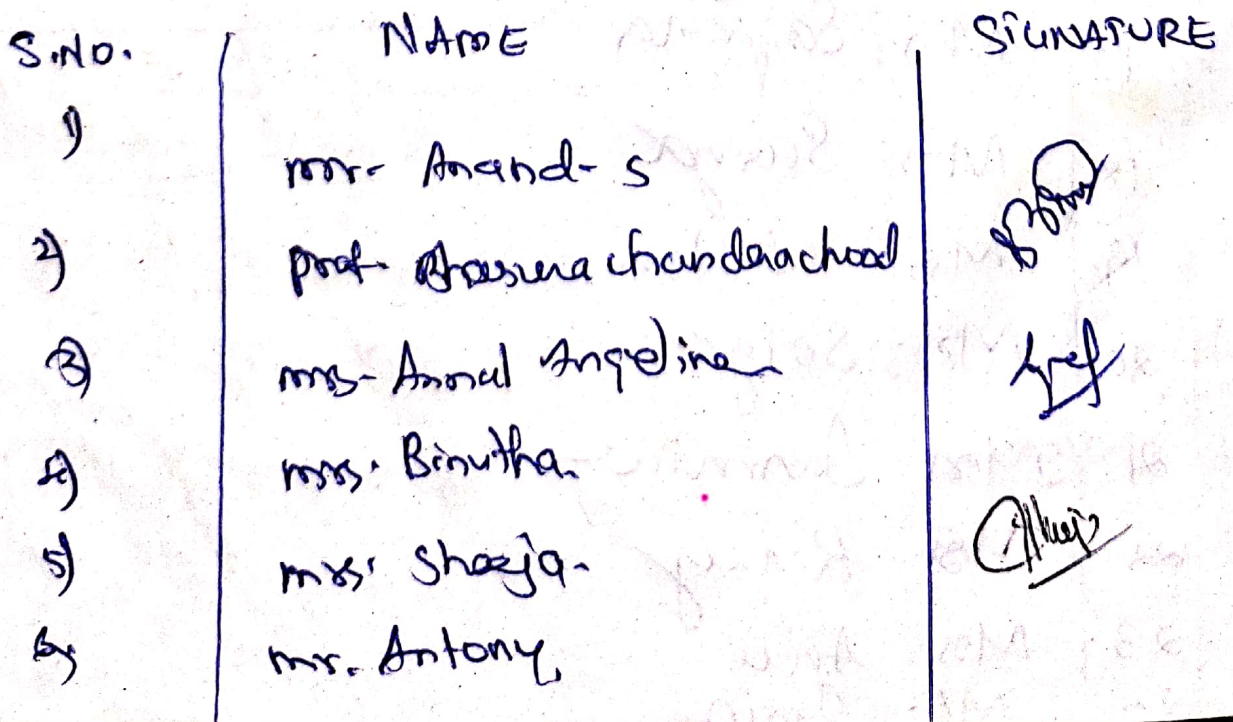 S.NO. NAME SIGNATURE
1) mr- Anand- S
2) prof- chanderachood
3) mrs- Ammal Angeline
4) mrs. Binutha.
5) mrs. Sheeja.
6) mr. Antony